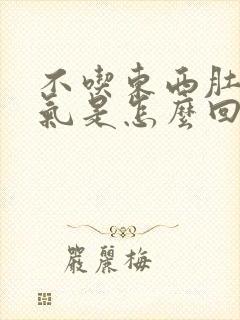 不喫東西肚
氣是怎麼回
嚴麗梅